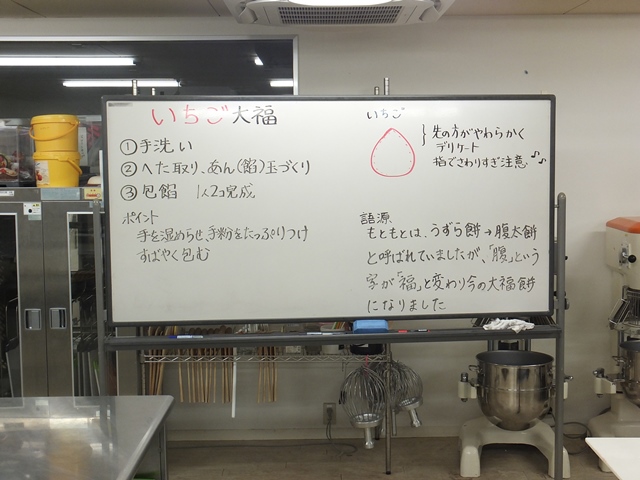 いちご大福
①手洗い
②へた取り、あん(餡)玉づくり
③包餡 1人2コ完成
ポイント
手を湿めらせ、手粉をたっぷりつけ
すばやく包む
いちご
先の方がやわらかく
デリケート
指でさわりすぎ注意♪♪
語源
もともとは、うずら餅→腹太餅
と呼ばれていましたが、「腹」という
字が「福」と変わり今の大福餅
になりました